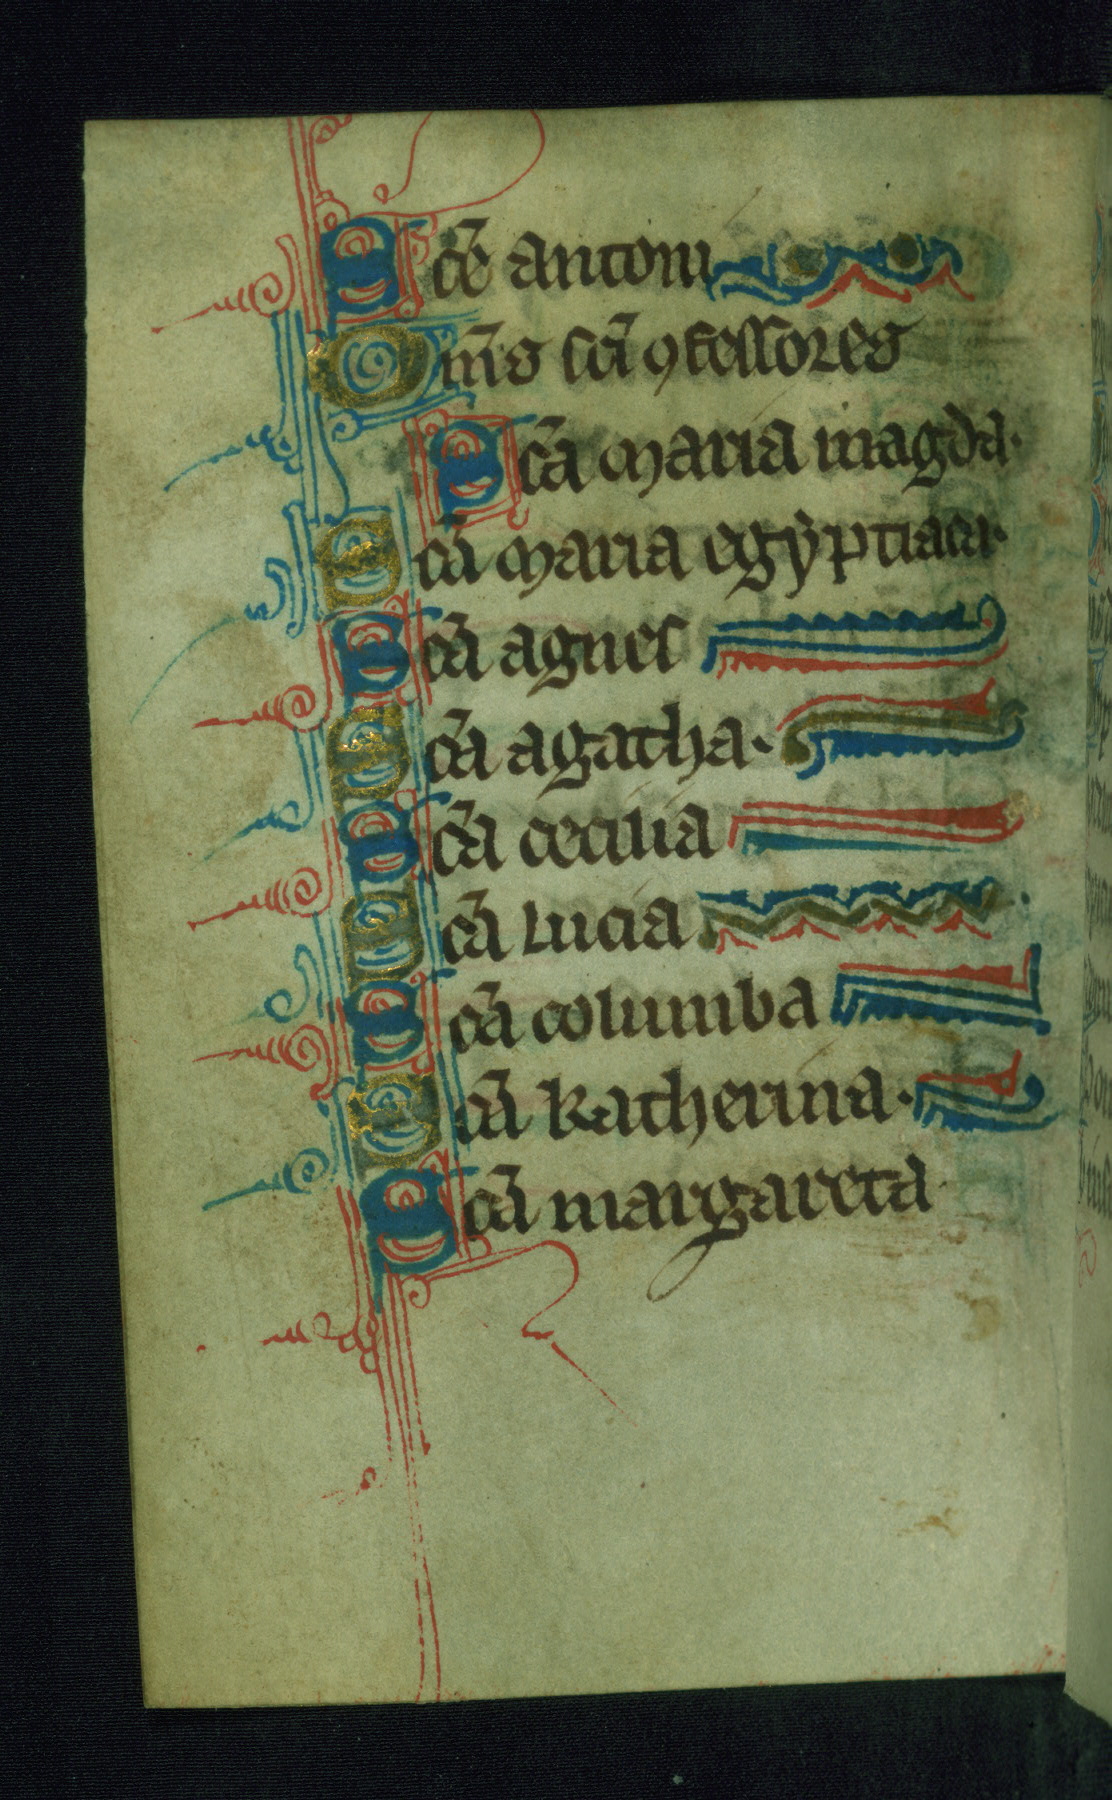 Sc̄e antoni
Om̄s sc̄i ꝯfessores
Sc̄a maria magda·
Sc̄a maria egẏptiaca·
Sc̄a agnes
Sc̄a agatha·
Sc̄a cecilia
Sc̄a Lucia
Sc̄a columba
Sc̄a katherina·
Sc̄a margareta